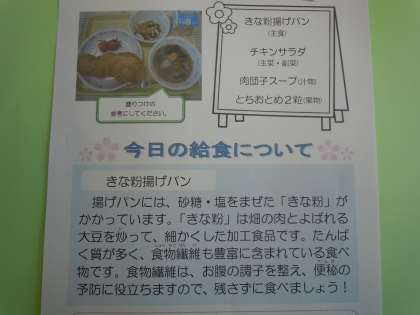 きな粉揚げパン
(主食)
チキンサラダ
(主菜・副菜)
肉団子スープ(汁物)
とちおとめ2粒(果物)
盛りつけの
参考にしてください。
今日の給食について
きな粉揚げパン
揚げパンには、砂糖・塩をまぜた「きな粉」が
かかっています。「きな粉」は畑の肉とよばれる
大豆を炒って、細かくした加工食品です。たんぱ
く質が多く、食物繊維も豊富に含まれている食べ
物です。食物繊維は、お腹の調子を整え、便秘の
予防に役立ちますので、残さずに食べましょう！